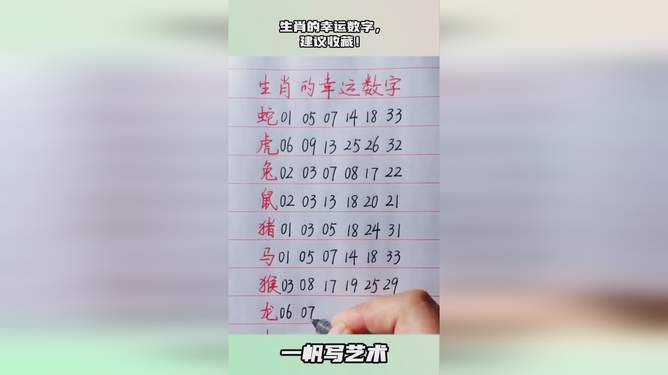 生肖的幸运数字，
建议收藏！
生肖的幸运数字
蛇 01 05 07 14 18 33
虎 06 09 13 25 26 32
兔 02 03 07 08 17 22
鼠 02 03 13 18 20 21
猪 01 03 05 18 24 31
马 01 05 07 14 18 33
猴 03 08 17 19 25 29
龙 06 07
一帆写艺术